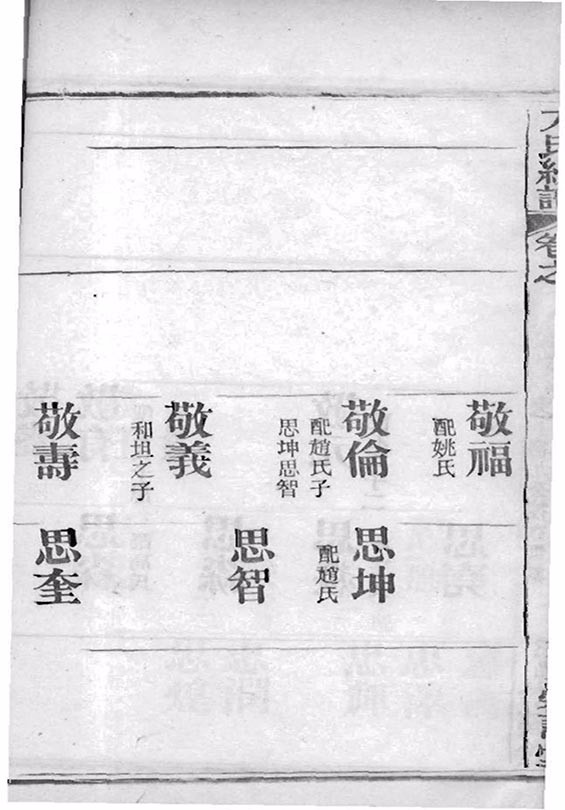 敬福
配姚氏
敬倫
配趙氏子
思坤思智
敬義
和坦之子
敬壽
思坤
配趙氏
思智
思奎